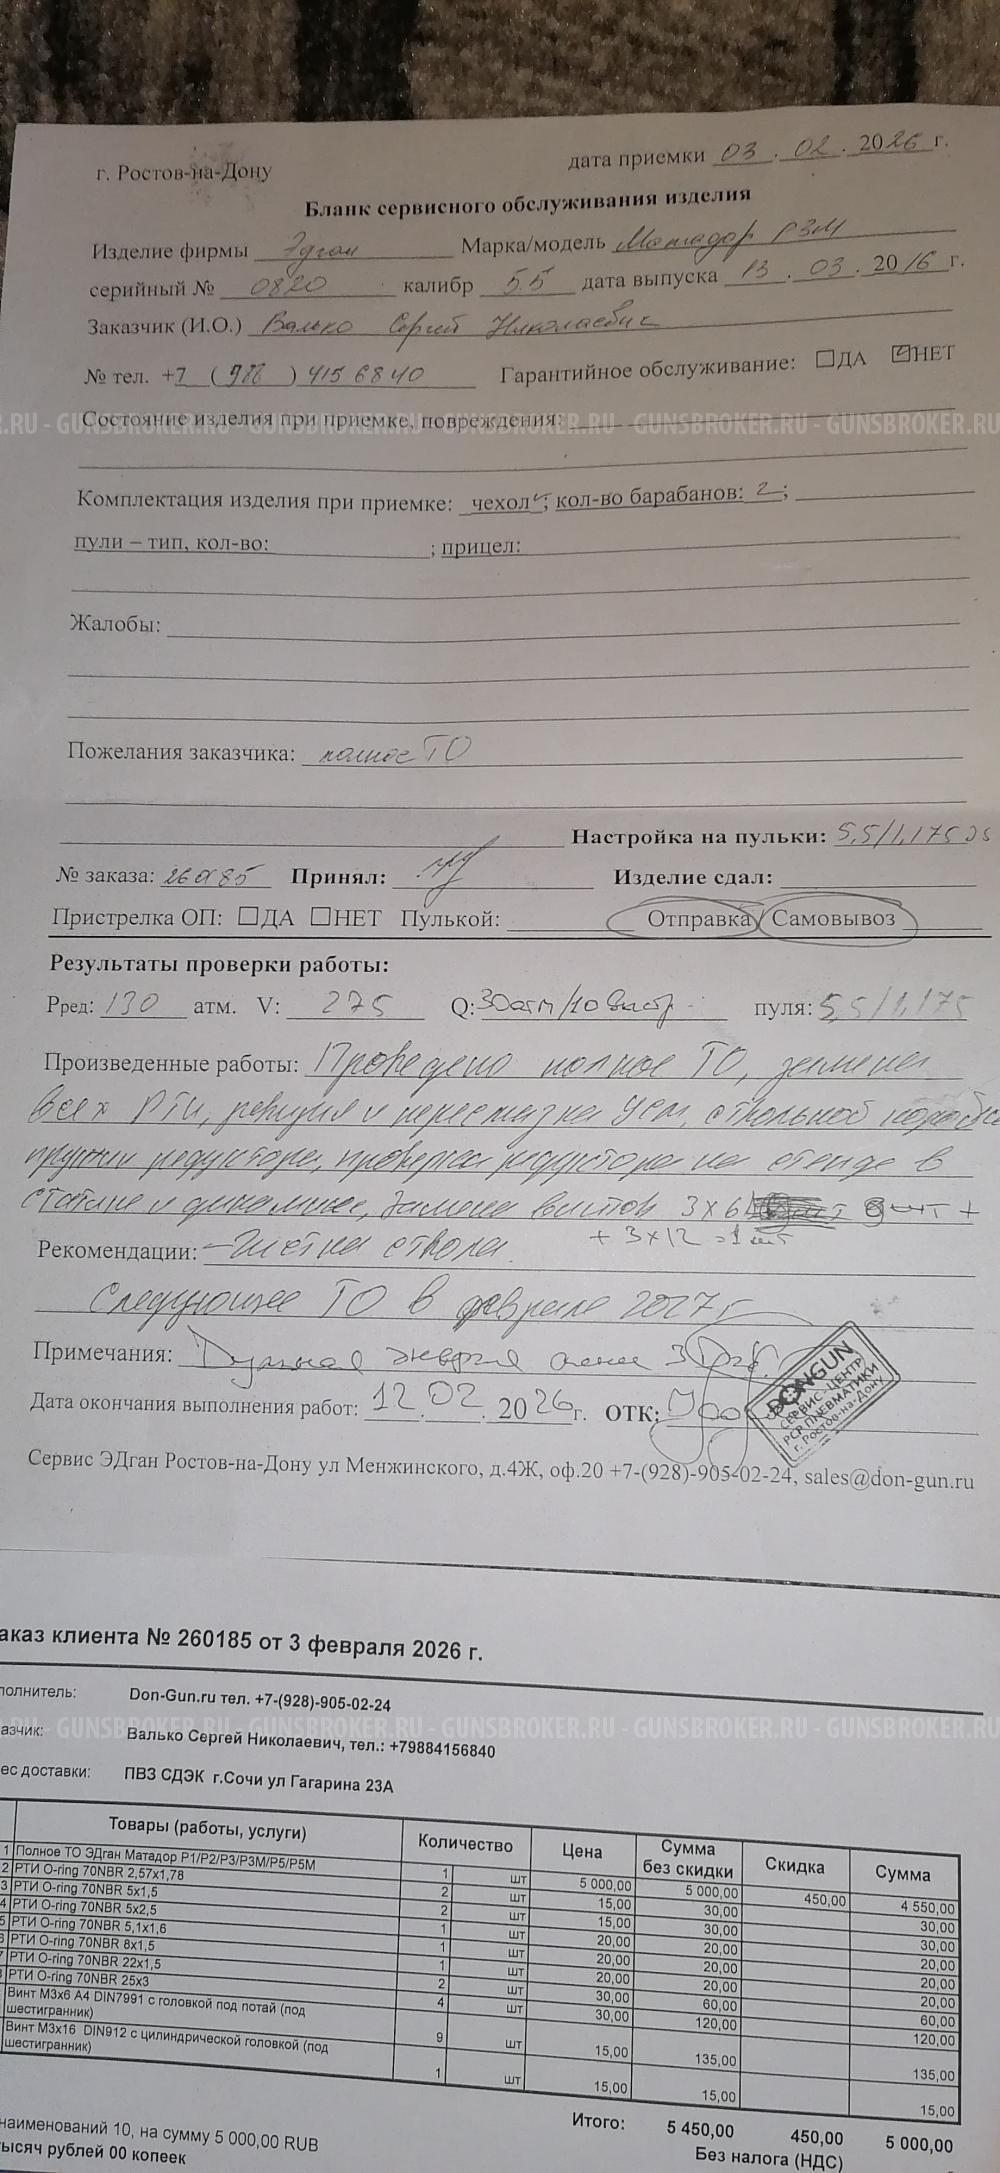 г. Ростов-на-Дону дата приемки 03 . 02 . 2026 г.
Бланк сервисного обслуживания изделия
Изделие фирмы Эдган Марка/модель Матадор Р3М
серийный № 0820 калибр 5.5 дата выпуска 13 . 03 . 2016 г.
Заказчик (И.О.) Валько Сергей Николаевич
№ тел. +7 (988) 4156840 Гарантийное обслуживание: ☐ДА ☑НЕТ
Состояние изделия при приемке, повреждения:
GUNSBROKER.RU - GUNSBROKER.RU - GUNSBROKER.RU - GUNSBROKER.RU
Комплектация изделия при приемке: чехол ; кол-во барабанов: 2 ;
пули – тип, кол-во: ; прицел:
Жалобы:
Пожелания заказчика: полное ТО
Настройка на пульки: 5,5/1,175
№ заказа: 260185 Принял: Изделие сдал:
Пристрелка ОП: ☐ДА ☐НЕТ Пулькой: Отправка / Самовывоз
Результаты проверки работы:
Pред: 130 атм. V: 275 Q: 30атм/10выстр. пуля: 5,5/1,175
Произведенные работы: Проведено полное ТО, замена
всех РТИ, ревизия и пересмазка УСМ, ствольной коробки
пружин редуктора, проверка редуктора на стенде в
статике и динамике, замена винтов 3х6 9шт +
+ 3х12 =1шт
Рекомендации: – Чистка ствола.
Следующее ТО в феврале 2027г
Примечания: Дульная энергия менее 3 Дж.
Дата окончания выполнения работ: 12.02. 2026г. ОТК:
DONGUN
СЕРВИС-ЦЕНТР
PCP ПНЕВМАТИКИ
г. Ростов-на-Дону
Сервис ЭДган Ростов-на-Дону ул Менжинского, д.4Ж, оф.20 +7-(928)-905-02-24, sales@don-gun.ru
аказ клиента № 260185 от 3 февраля 2026 г.
полнитель: Don-Gun.ru тел. +7-(928)-905-02-24
GUNSBROKER.RU - GUNSBROKER.RU - GUNSBROKER.RU - GUNSBROKER.RU
азчик: Валько Сергей Николаевич, тел.: +79884156840
ес доставки: ПВЗ СДЭК г.Сочи ул Гагарина 23А
Товары (работы, услуги) Количество Цена Сумма без скидки Скидка Сумма
1 Полное ТО ЭДган Матадор Р1/Р2/Р3/Р3М/Р5/Р5М 1 шт 5 000,00 5 000,00 450,00 4 550,00
2 РТИ O-ring 70NBR 2,57x1,78 2 шт 15,00 30,00 30,00
3 РТИ O-ring 70NBR 5x1,5 2 шт 15,00 30,00 30,00
4 РТИ O-ring 70NBR 5x2,5 1 шт 20,00 20,00 20,00
5 РТИ O-ring 70NBR 5,1x1,6 1 шт 20,00 20,00 20,00
6 РТИ O-ring 70NBR 8x1,5 1 шт 20,00 20,00 20,00
7 РТИ O-ring 70NBR 22x1,5 2 шт 30,00 60,00 60,00
8 РТИ O-ring 70NBR 25x3 4 шт 30,00 120,00 120,00
Винт М3х6 А4 DIN7991 с головкой под потай (под шестигранник) 9 шт 15,00 135,00 135,00
Винт М3х16 DIN912 с цилиндрической головкой (под шестигранник) 1 шт 15,00 15,00 15,00
Итого: 5 450,00 450,00 5 000,00
наименований 10, на сумму 5 000,00 RUB Без налога (НДС)
тысяч рублей 00 копеек